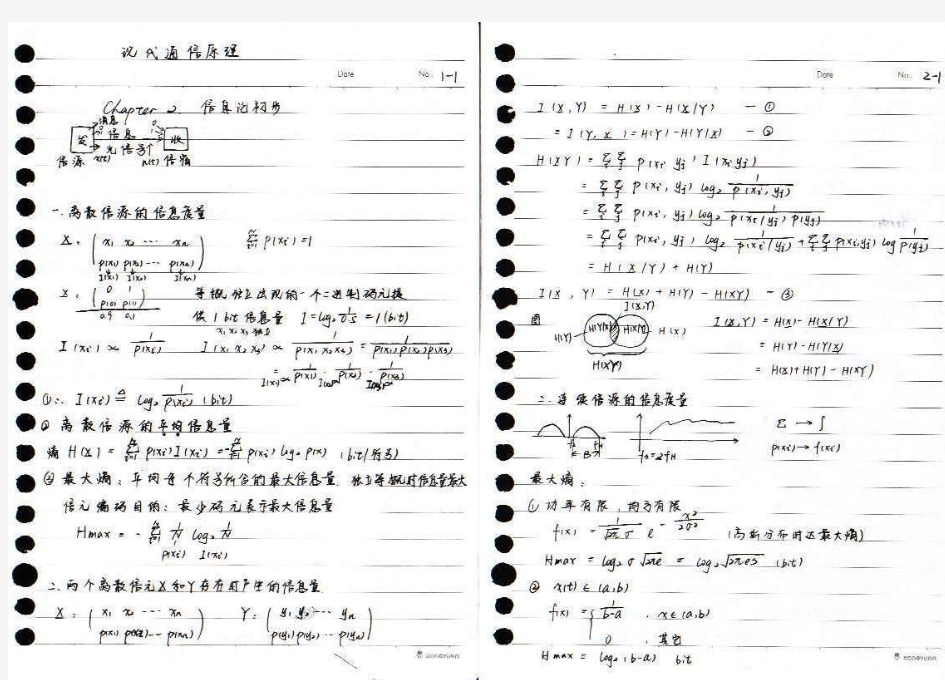 现代通信原理
Date No. 1-1
Chapter 2. 信息论初步
消息
发 信息 收
光信号
信源 x(t) n(t) 信宿
一. 离散信源的信息度量
X: ( x₁ x₂ ··· xₙ ) Σ p(xᵢ) = 1
p(x₁) p(x₂) ··· p(xₙ)
I(x₁) I(x₂) I(xₙ)
X: ( 0 1 ) 等概独立出现的一个二进制码元提
p(0) p(1)
0.9 0.1 供 1 bit 信息量 I = log₂ 1/0.5 = 1 (bit)
x₁ x₂ x₃ 独立
I(xᵢ) ∝ 1/p(xᵢ) I(x₁ x₂ x₃) ∝ 1/p(x₁ x₂ x₃) = 1/p(x₁)p(x₂)p(x₃)
= 1/p(x₁) · 1/p(x₂) · 1/p(x₃)
①∴ I(xᵢ) ≜ log₂ 1/p(xᵢ) (bit)
② 离散信源的平均信息量
熵 H(X) = Σ p(xᵢ) I(xᵢ) = -Σ p(xᵢ) log₂ p(x) (bit/符号)
③ 最大熵: 平均每个符号所含的最大信息量. 独立等概时信息量最大
信元编码目的: 最少码元表示最大信息量
Hmax = - Σ 1/N log₂ 1/N
p(xᵢ) I(xᵢ)
二. 两个离散信元X和Y存在时产生的信息量
X: ( x₁ x₂ ··· xₙ ) Y: ( y₁ y₂ ··· yₙ )
p(x₁) p(x₂) ··· p(xₙ) p(y₁) p(y₂) ··· p(yₙ)
Date No. 2-1
I(X,Y) = H(X) - H(X/Y) — ①
= I(Y,X) = H(Y) - H(Y/X) — ②
H(XY) = Σ Σ p(xᵢ yⱼ) I(xᵢ yⱼ)
= Σ Σ p(xᵢ, yⱼ) log₂ 1/p(xᵢ, yⱼ)
= Σ Σ p(xᵢ, yⱼ) log₂ 1/p(xᵢ/yⱼ) p(yⱼ)
= Σ Σ p(xᵢ, yⱼ) log₂ 1/p(xᵢ/yⱼ) + Σ Σ p(xᵢ, yⱼ) log 1/p(yⱼ)
= H(X/Y) + H(Y)
I(X, Y) = H(X) + H(Y) - H(XY) — ③
图 I(X,Y) I(X,Y) = H(X) - H(X/Y)
H(Y) H(Y/X) H(X/Y) H(X)
= H(Y) - H(Y/X)
H(XY) = H(X) + H(Y) - H(XY)
二. 连续信源的信息度量
Σ → ∫
fₛ = 2f_H p(xᵢ) → f(xᵢ)
最大熵:
① 功率有限, 均方有限
f(x) = 1/√2π σ e^(- x²/2σ²) (高斯分布时达最大熵)
Hmax = log₂ σ √2πe = log₂ √2πeS (bit)
② x(t) ∈ (a,b)
f(x) = { 1/b-a , x ∈ (a,b)
0 , 其它
Hmax = log₂ (b-a) bit